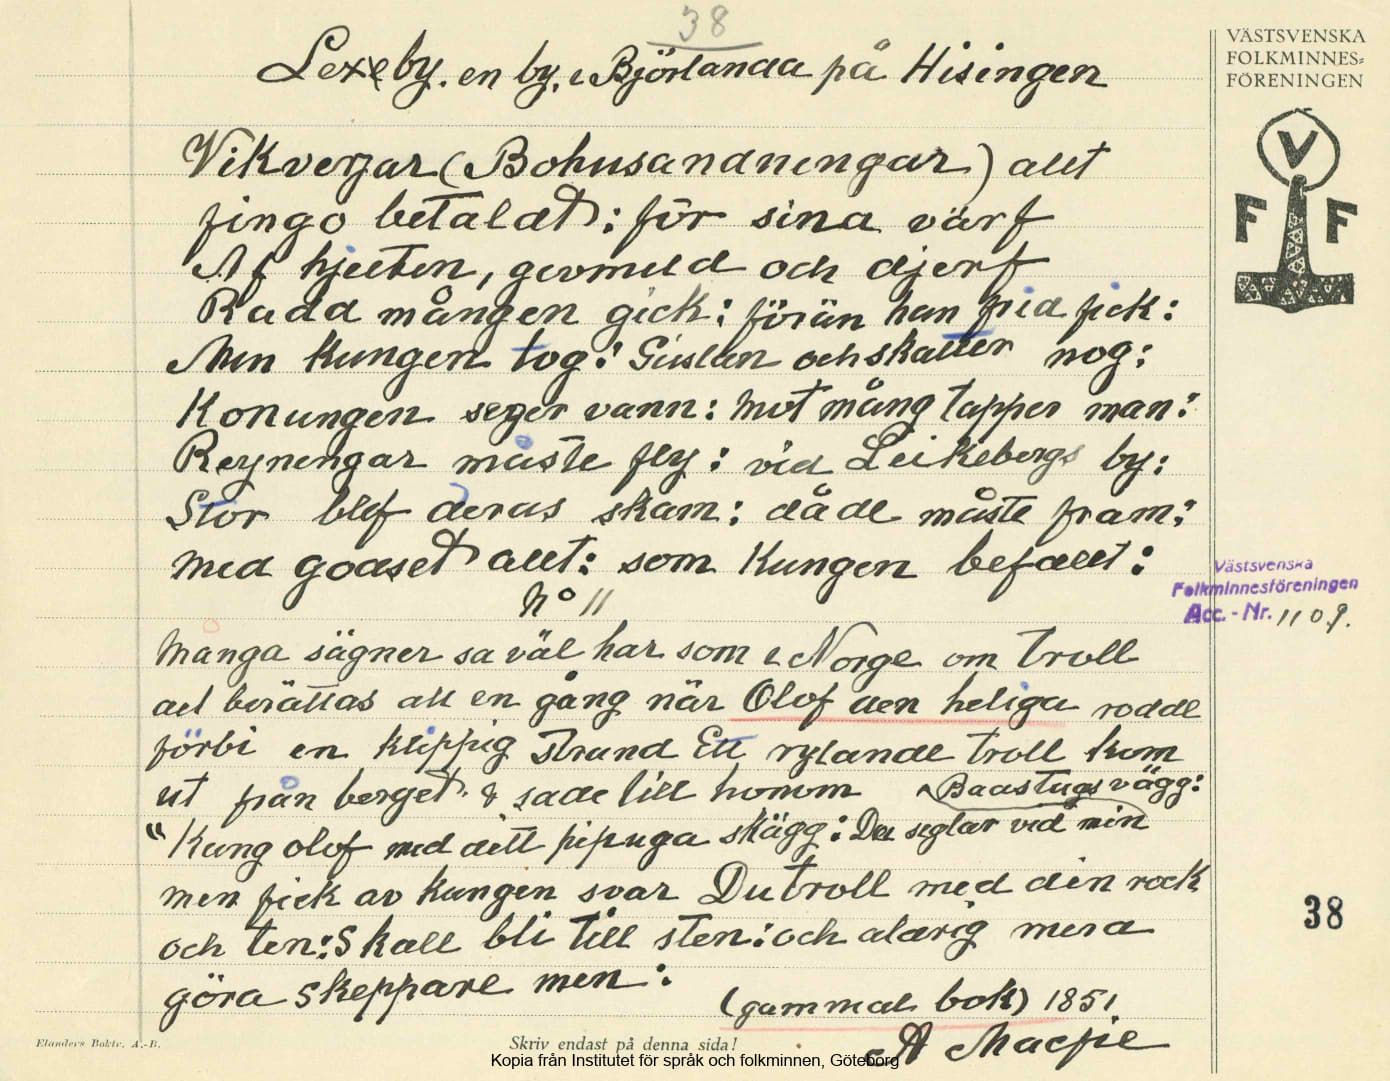 38
VÄSTSVENSKA
FOLKMINNES-
FÖRENINGEN
V
F F
Lexeby. en by, i Björlanda på Hisingen
Vikverjar (Bohusandningar) allt
fingo betaldt: för sina värf
Af hjelten, givmild och djerf
Rädd mången gick: förän han frid fick:
Men Kungen tog: Gisslan och skatter nog:
Konungen seger vann: mot mång tapper man:
Reyningar måste fly: vid Leikebergs by:
Stor blef deras skam: både måste fram:
med godset allt: som Kungen befallt:
No 11
Många sägner sa väl har som i Norge om troll
det berättas att en gång när Olof den heliga rodde
förbi en klippig strand Ett rytande troll kom
ut från berget. & sade till honom
Baastugs vägg:
"Kung olof med ditt pipuga skägg: Du seglar vid min
men fick av kungen svar Du troll med din rock
och ten: Skall bli till sten: och aldrig mera
göra skeppare men:
(gammal bok) 1851
A Macfie
Västsvenska
Folkminnesföreningen
Acc.-Nr. 1109.
38
Elanders Boktr. A.-B.
Skriv endast på denna sida!
Kopia från Institutet för språk och folkminnen, Göteborg